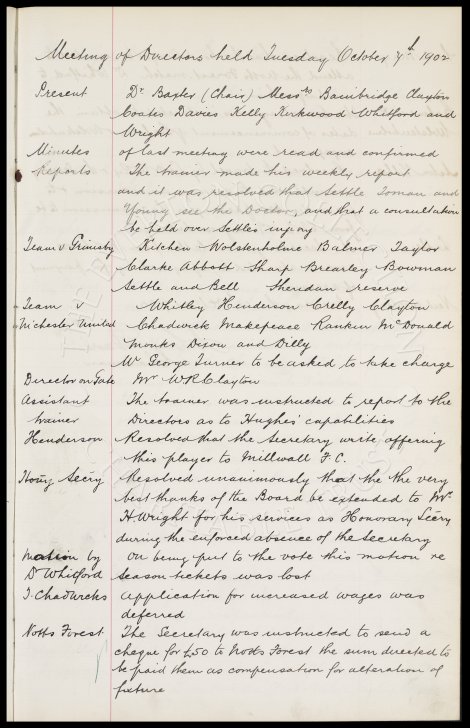 Meeting of Directors held Tuesday October 7th 1902
Present Dr. Baxter (Chair) Messrs Bainbridge Clayton
Coates Davies Kelly Kirkwood Whitford and
Wright
Minutes of last meeting were read and confirmed
Reports The trainer made his weekly report
and it was resolved that Settle Toman and
Young see the Doctor, and that a consultation
be held over Settle's injury
Team v Grimsby Kitchen Wolstenholme Balmer Taylor
Clarke Abbott Sharp Brearley Bowman
Settle and Bell Sheridan reserve
Team v Whitley Henderson Crelly Clayton
Mchester United Chadwick Makepeace Rankin McDonald
Monks Dixon and Dilly
Mr George Turner to be asked to take charge
Director on Gate Mr WR Clayton
Assistant The trainer was instructed to report to the
trainer Directors as to Hughes' capabilities
Henderson Resolved that the Secretary write offering
this player to Millwall F.C.
Hony Secry Resolved unanimously that the the very
best thanks of the Board be extended to Mr.
H Wright for his services as Honorary Secry
during the enforced absence of the Secretary
Motion by On being put to the vote this motion re
Dr Whitford Season tickets was lost
J. Chadwicks Application for increased wages was
deferred
Notts Forest The Secretary was instructed to send a
cheque for £50 to Notts Forest the sum directed to
be paid them as compensation for alteration of
fixture